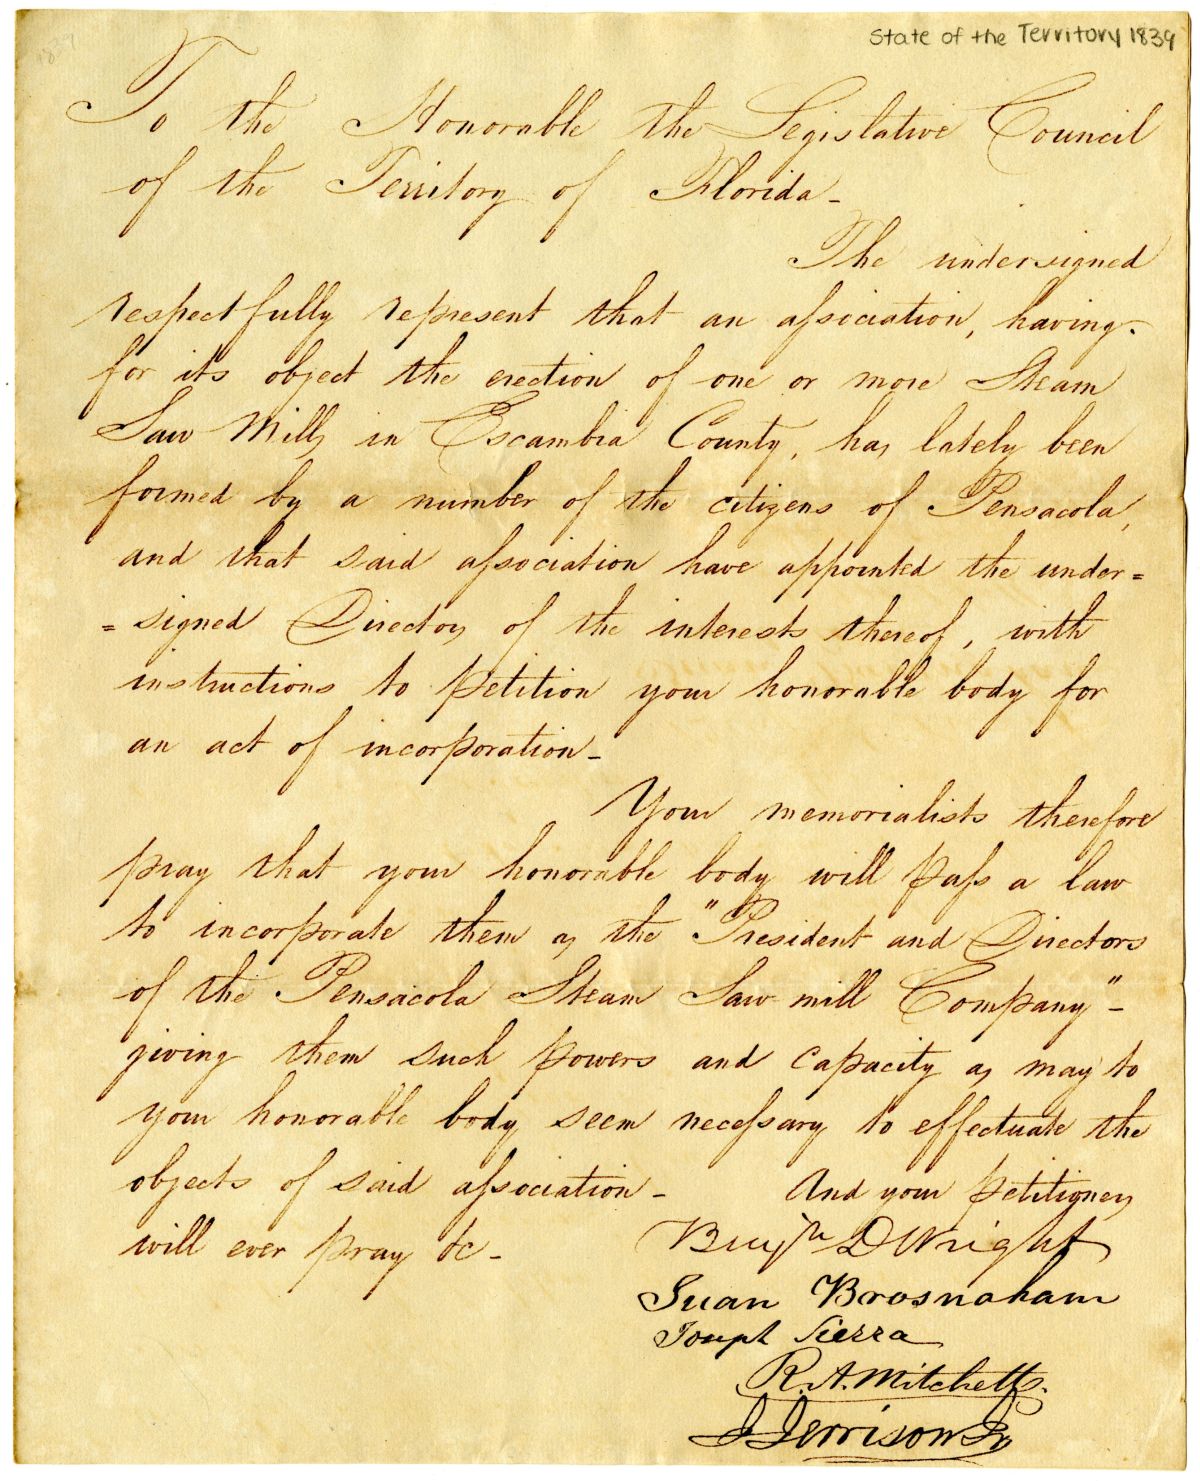 1839
State of the Territory 1839
To the Honorable the Legislative Council
of the Territory of Florida -
The undersigned
respectfully represent that an association, having
for its object the erection of one or more Steam
Saw Mills in Escambia County, has lately been
formed by a number of the citizens of Pensacola,
and that said association have appointed the under=
=signed Directors of the interests thereof, with
instructions to petition your honorable body for
an act of incorporation -
Your memorialists therefore
pray that your honorable body will pass a law
to incorporate them as the "President and Directors
of the Pensacola Steam Saw mill Company" -
giving them such powers and capacity as may to
your honorable body seem necessary to effectuate the
objects of said association - And your petitioners
will ever pray &c -
Benjn D Wright
Juan Brosnaham
Joseph Sierra
R. A. Mitchell
J Jerrison Jr